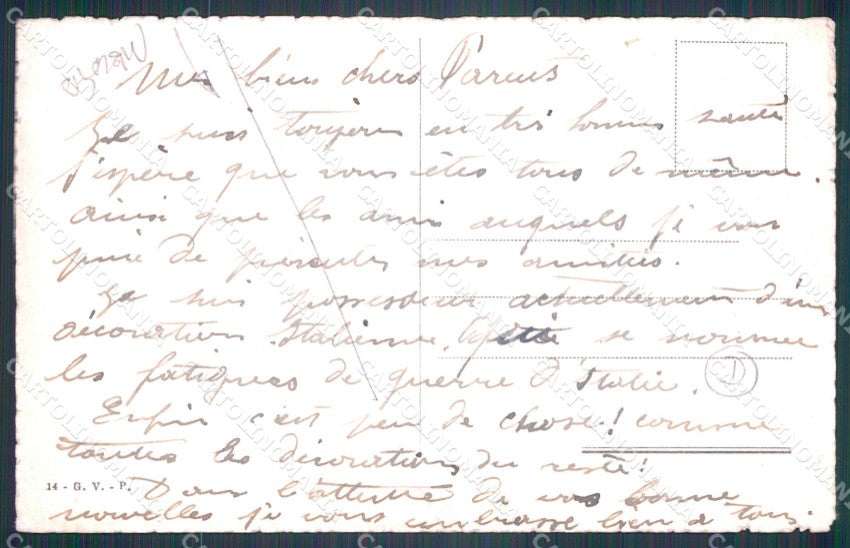 Mes biens chers Parents
Je suis toujours en très bonne santé
j'espère que vous êtes tous de même.
ainsi que les amis auxquels je vous
prie de présenter mes amitiés.
Je suis possesseur actuellement d'une
décoration Italienne, se nomme
les fatigues de guerre d'Italie.
1
Enfin c'est peu de chose! comme
toutes les décorations du reste!
14 - G. V. - P.
Dans l'attente de vos bonne
nouvelles je vous embrasse bien à tous.
CARTOLINOMANIA